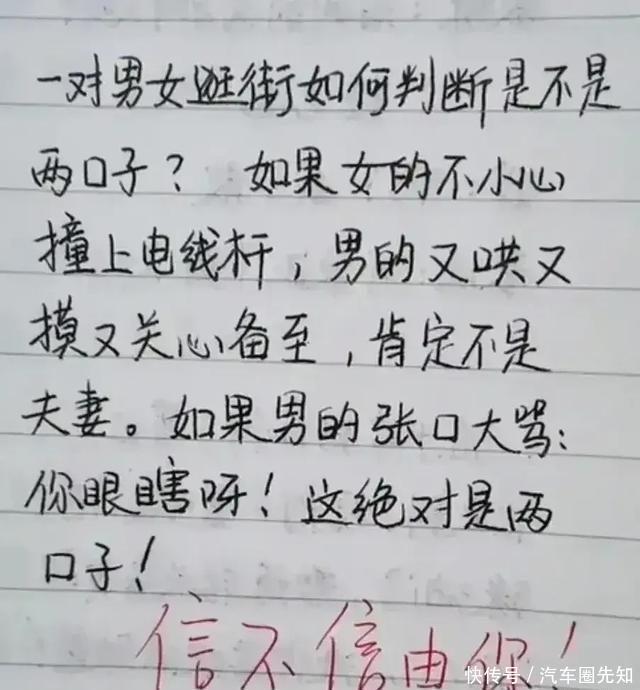 一对男女逛街如何判断是不是
两口子？ 如果女的不小心
撞上电线杆，男的又哄又
摸又关心备至，肯定不是
夫妻。如果男的张口大骂：
你眼瞎呀！这绝对是两
口子！
信不信由你！
快传号／汽车圈先知